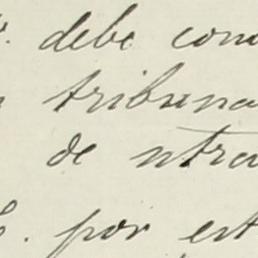 debe cono
tribuna
de otra
por est